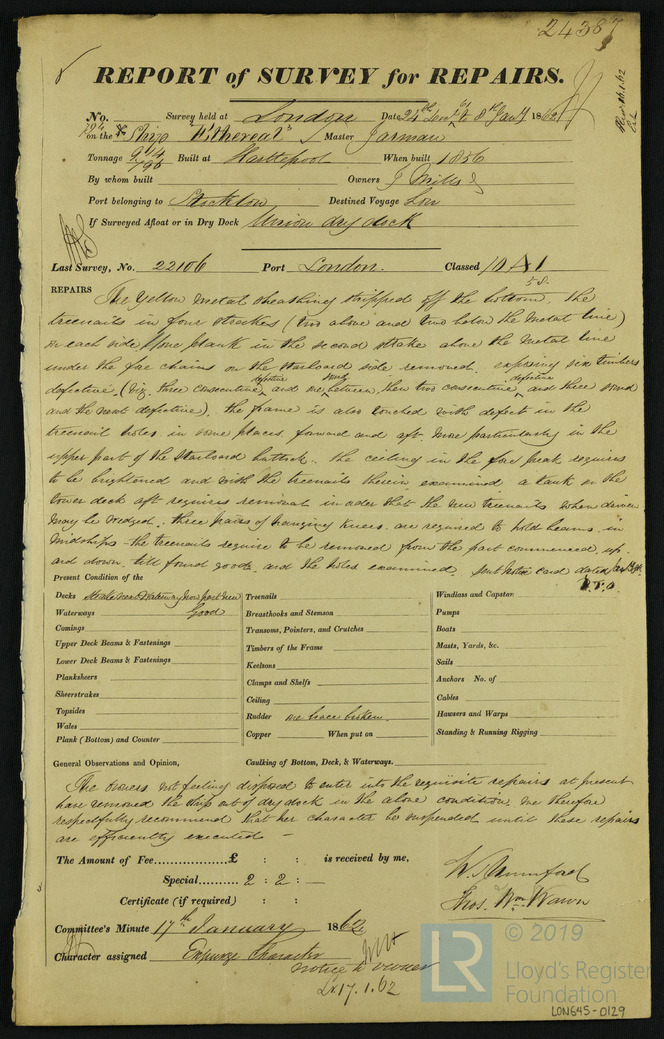 24387
REPORT of SURVEY for REPAIRS.
No. Survey held at London Date 8th Jany 1862
on the Ship "Ethereal" Master Jarman
Tonnage 914/796 Built at Hartlepool When built 1856
By whom built Owners J Mills
Port belonging to Stockton Destined Voyage Lon
If Surveyed Afloat or in Dry Dock Union dry dock
Last Survey, No. 22106 Port London. Classed 10 A 1
5 S.
REPAIRS The Yellow Metal sheathing stripped off the bottom, the
treenails in four strakes (two above and two below the metal line)
on each side one plank in the second strake above the metal line
under the fore chains on the starboard side removed. exposing six timbers
defective (viz. three consecutive defective and one between, then two consecutive defective and three sound
and the next defective). the frame is also touched with defect in the
treenail holes in some places forward and aft. more particularly in the
upper part of the starboard buttock. the ceiling in the fore peak requires
to be brightened and with the treenails therein examined a tank on the
lower deck aft requires removal in order that the new treenails when driven
may be wedged. three pairs of hanging knees are required to hold beams in
midships - the treenails require to be removed from the part commenced up
and down, till found good, and the holes examined. card dated
P.T.O
Present Condition of the
Decks Strake next Waterway
Waterways Good
Comings
Upper Deck Beams & Fastenings
Lower Deck Beams & Fastenings
Planksheers
Sheerstrakes
Topsides
Wales
Plank (Bottom) and Counter
Treenails
Breasthooks and Stemson
Transoms, Pointers, and Crutches
Timbers of the Frame
Keelsons
Clamps and Shelfs
Ceiling
Rudder one brace broken.
Copper When put on
Windlass and Capstan
Pumps
Boats
Masts, Yards, &c.
Sails
Anchors No. of
Cables
Hawsers and Warps
Standing & Running Rigging
General Observations and Opinion, Caulking of Bottom, Deck, & Waterways.
The owners not feeling disposed to enter into the requisite repairs at present
have removed the ship out of dry dock in the above condition, we therefore
respectfully recommend that her character be suspended until these repairs
are efficiently executed -
The Amount of Fee £ : : is received by me,
Special 2 : 2 : -
Certificate (if required) : :
W. Mumford
Thos. Wm. Wawn
Committee's Minute 17th January 1862
Character assigned Expunge Character
notice to owner
Lr. 17.1.62
© 2019
LR Lloyd's Register
Foundation
LON645-0129